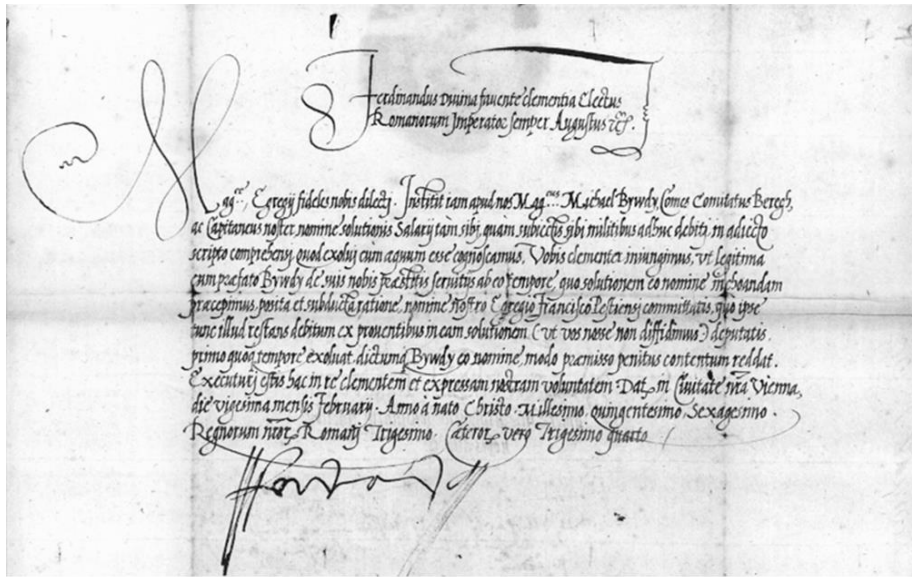 Ferdinandus Divina favente clementia Electus
Romanorum Imperator semper Augustus
Mag.ce, Egregij fideles nobis dilectj. Institit iam apud nos Mag.cus Michael Bywdy, Comes Comitatus Beregh,
ac Capitaneus noster, nomine solutionis Salarij tàm sibj, quam subiectis sibi militibus adhuc debiti, in adiecto
scripto comprehensi, quod exoluj cum aequum esse cognoscamus, Vobis clementer iniungimus, vt legitima
cum praefato Bywdy de suis nobis praestitis seruitijs ab eo tempore, quo solutionem eo nomine inchoandam
praecepimus, posita et subducta ratione, nomine nostro Egregio Francisco Pestiensi committatis, quo ipse
tunc illud restans debitum ex prouentibus in eam solutionem (vt vos nosse non diffidimus) deputatis
primo quoq tempore exoluat, dictumq Bywdy eo nomine, modo praemisso penitus contentum reddat.
Executurj estis hac in re clementem et expressam nostram voluntatem. Dat. in Ciuitate nra Vienna,
die vigesima mensis Februarij. Anno à nato Christo. Millesimo. quingentesimo. Sexagesimo.
Regnorum nror Romanj Trigesimo. Caeteror verò Trigesimo quarto